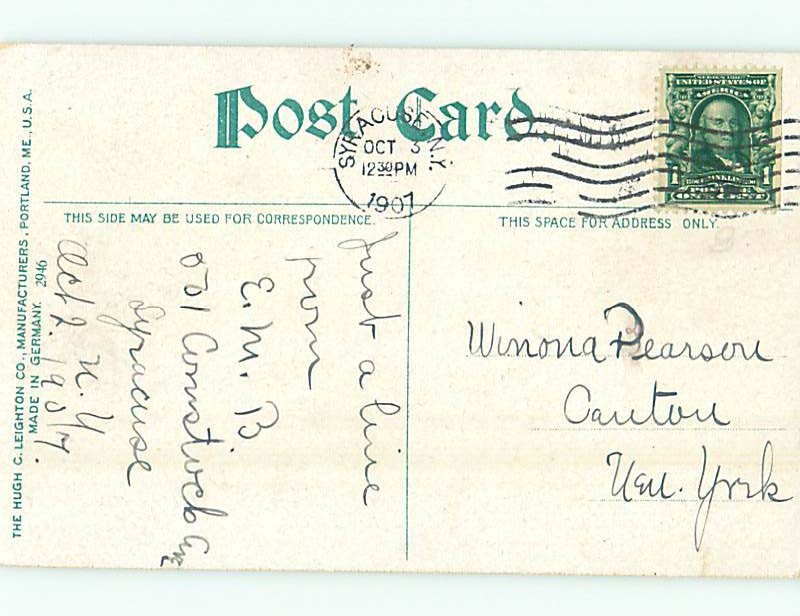 Post Card.
SYRACUSE, N.Y.
OCT 3
12 30 PM
1907
SERIES 1902
UNITED STATES OF
AMERICA
1 1
FRANKLIN
ONE CENT
THIS SIDE MAY BE USED FOR CORRESPONDENCE.
THIS SPACE FOR ADDRESS ONLY.
THE HUGH C. LEIGHTON CO., MANUFACTURERS, PORTLAND, ME., U.S.A.
MADE IN GERMANY. 2946
Just a line
from
E. M. B.
Comstock Ave
Syracuse
N. Y
Oct 2. 1907.
Winona Pearson
Canton
New. York